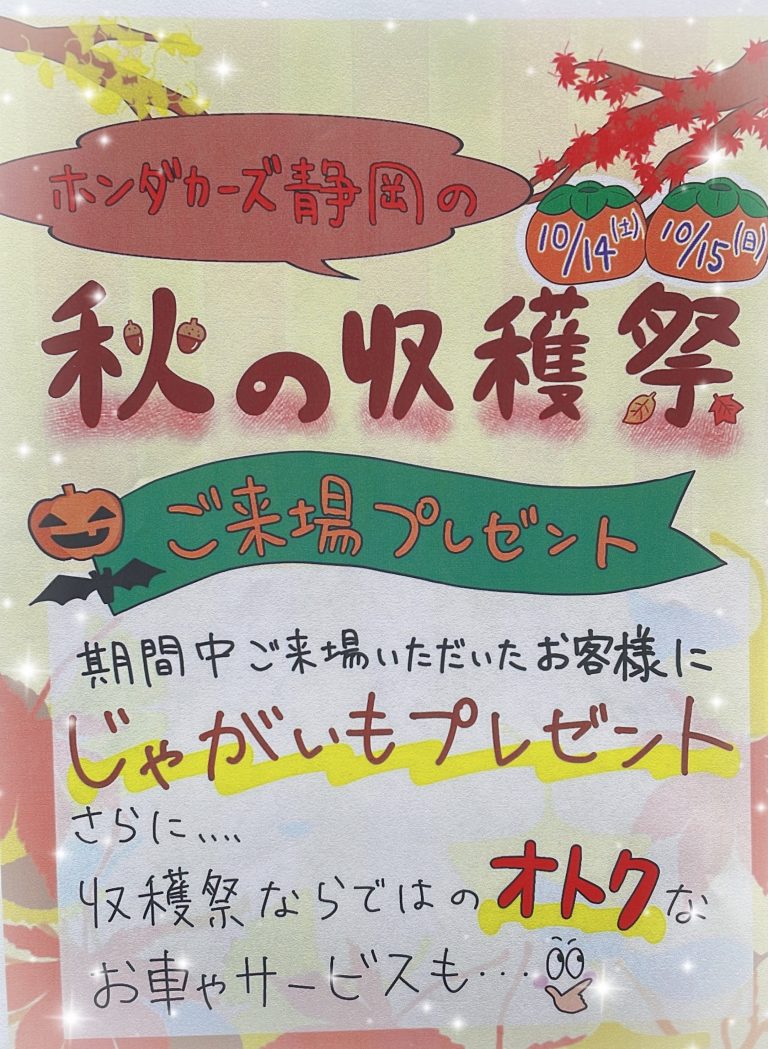 ホンダカーズ静岡の
10/14(土)
10/15(日)
秋の収穫祭
ご来場プレゼント
期間中ご来場いただいたお客様に
じゃがいもプレゼント
さらに....
収穫祭ならではのオトクな
お車やサービスも...